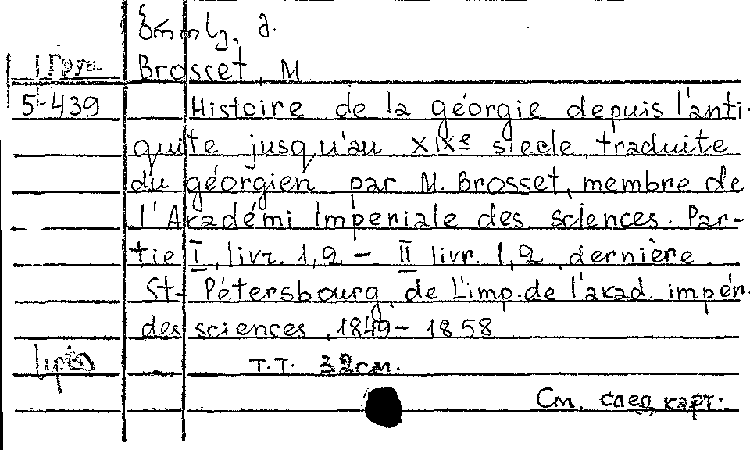 ბროსე, მ.
Brosset, M
5-439 Histoire de la géorgie depuis l'anti-
quite jusqu'au XIXe siecle, traduite
du géorgien par M. Brosset, membre de
l'Akadémi Imperiale des sciences. Par-
tie I, livr. 1,2 - II livr. 1,2, dernière.
St-Pétersbourg, de L'imp. de l'akad. impér.
des sciences, 1849-1858
т.т. 32см.
См. след карт.